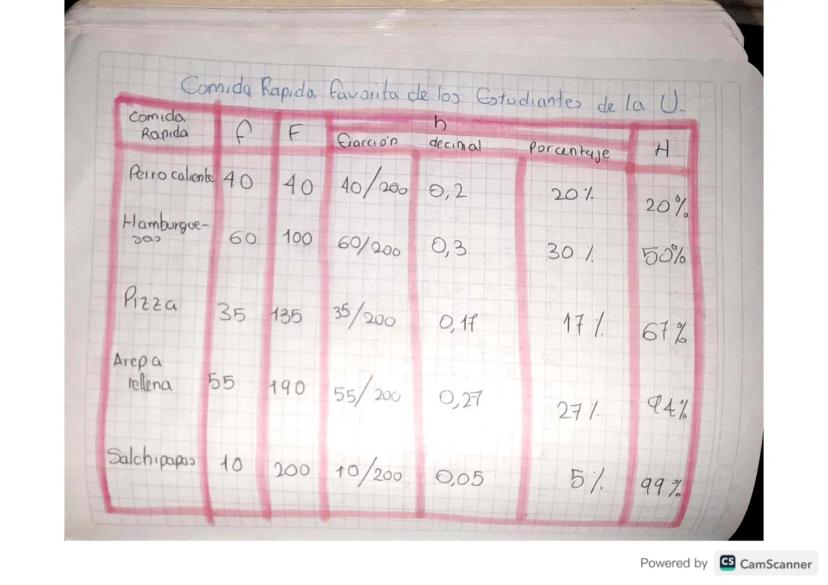 Comida Rapida favorita de los Estudiantes de la U.
Comida Rapida f F h H
fracción decimal porcentaje
Perro caliente 40 40 40/200 0,2 20% 20%
Hamburgue-
sas 60 100 60/200 0,3 30% 50%
Pizza 35 135 35/200 0,17 17% 67%
Arepa
rellena 55 190 55/200 0,27 27% 94%
Salchipapas 10 200 10/200 0,05 5% 99%
Powered by CS CamScanner